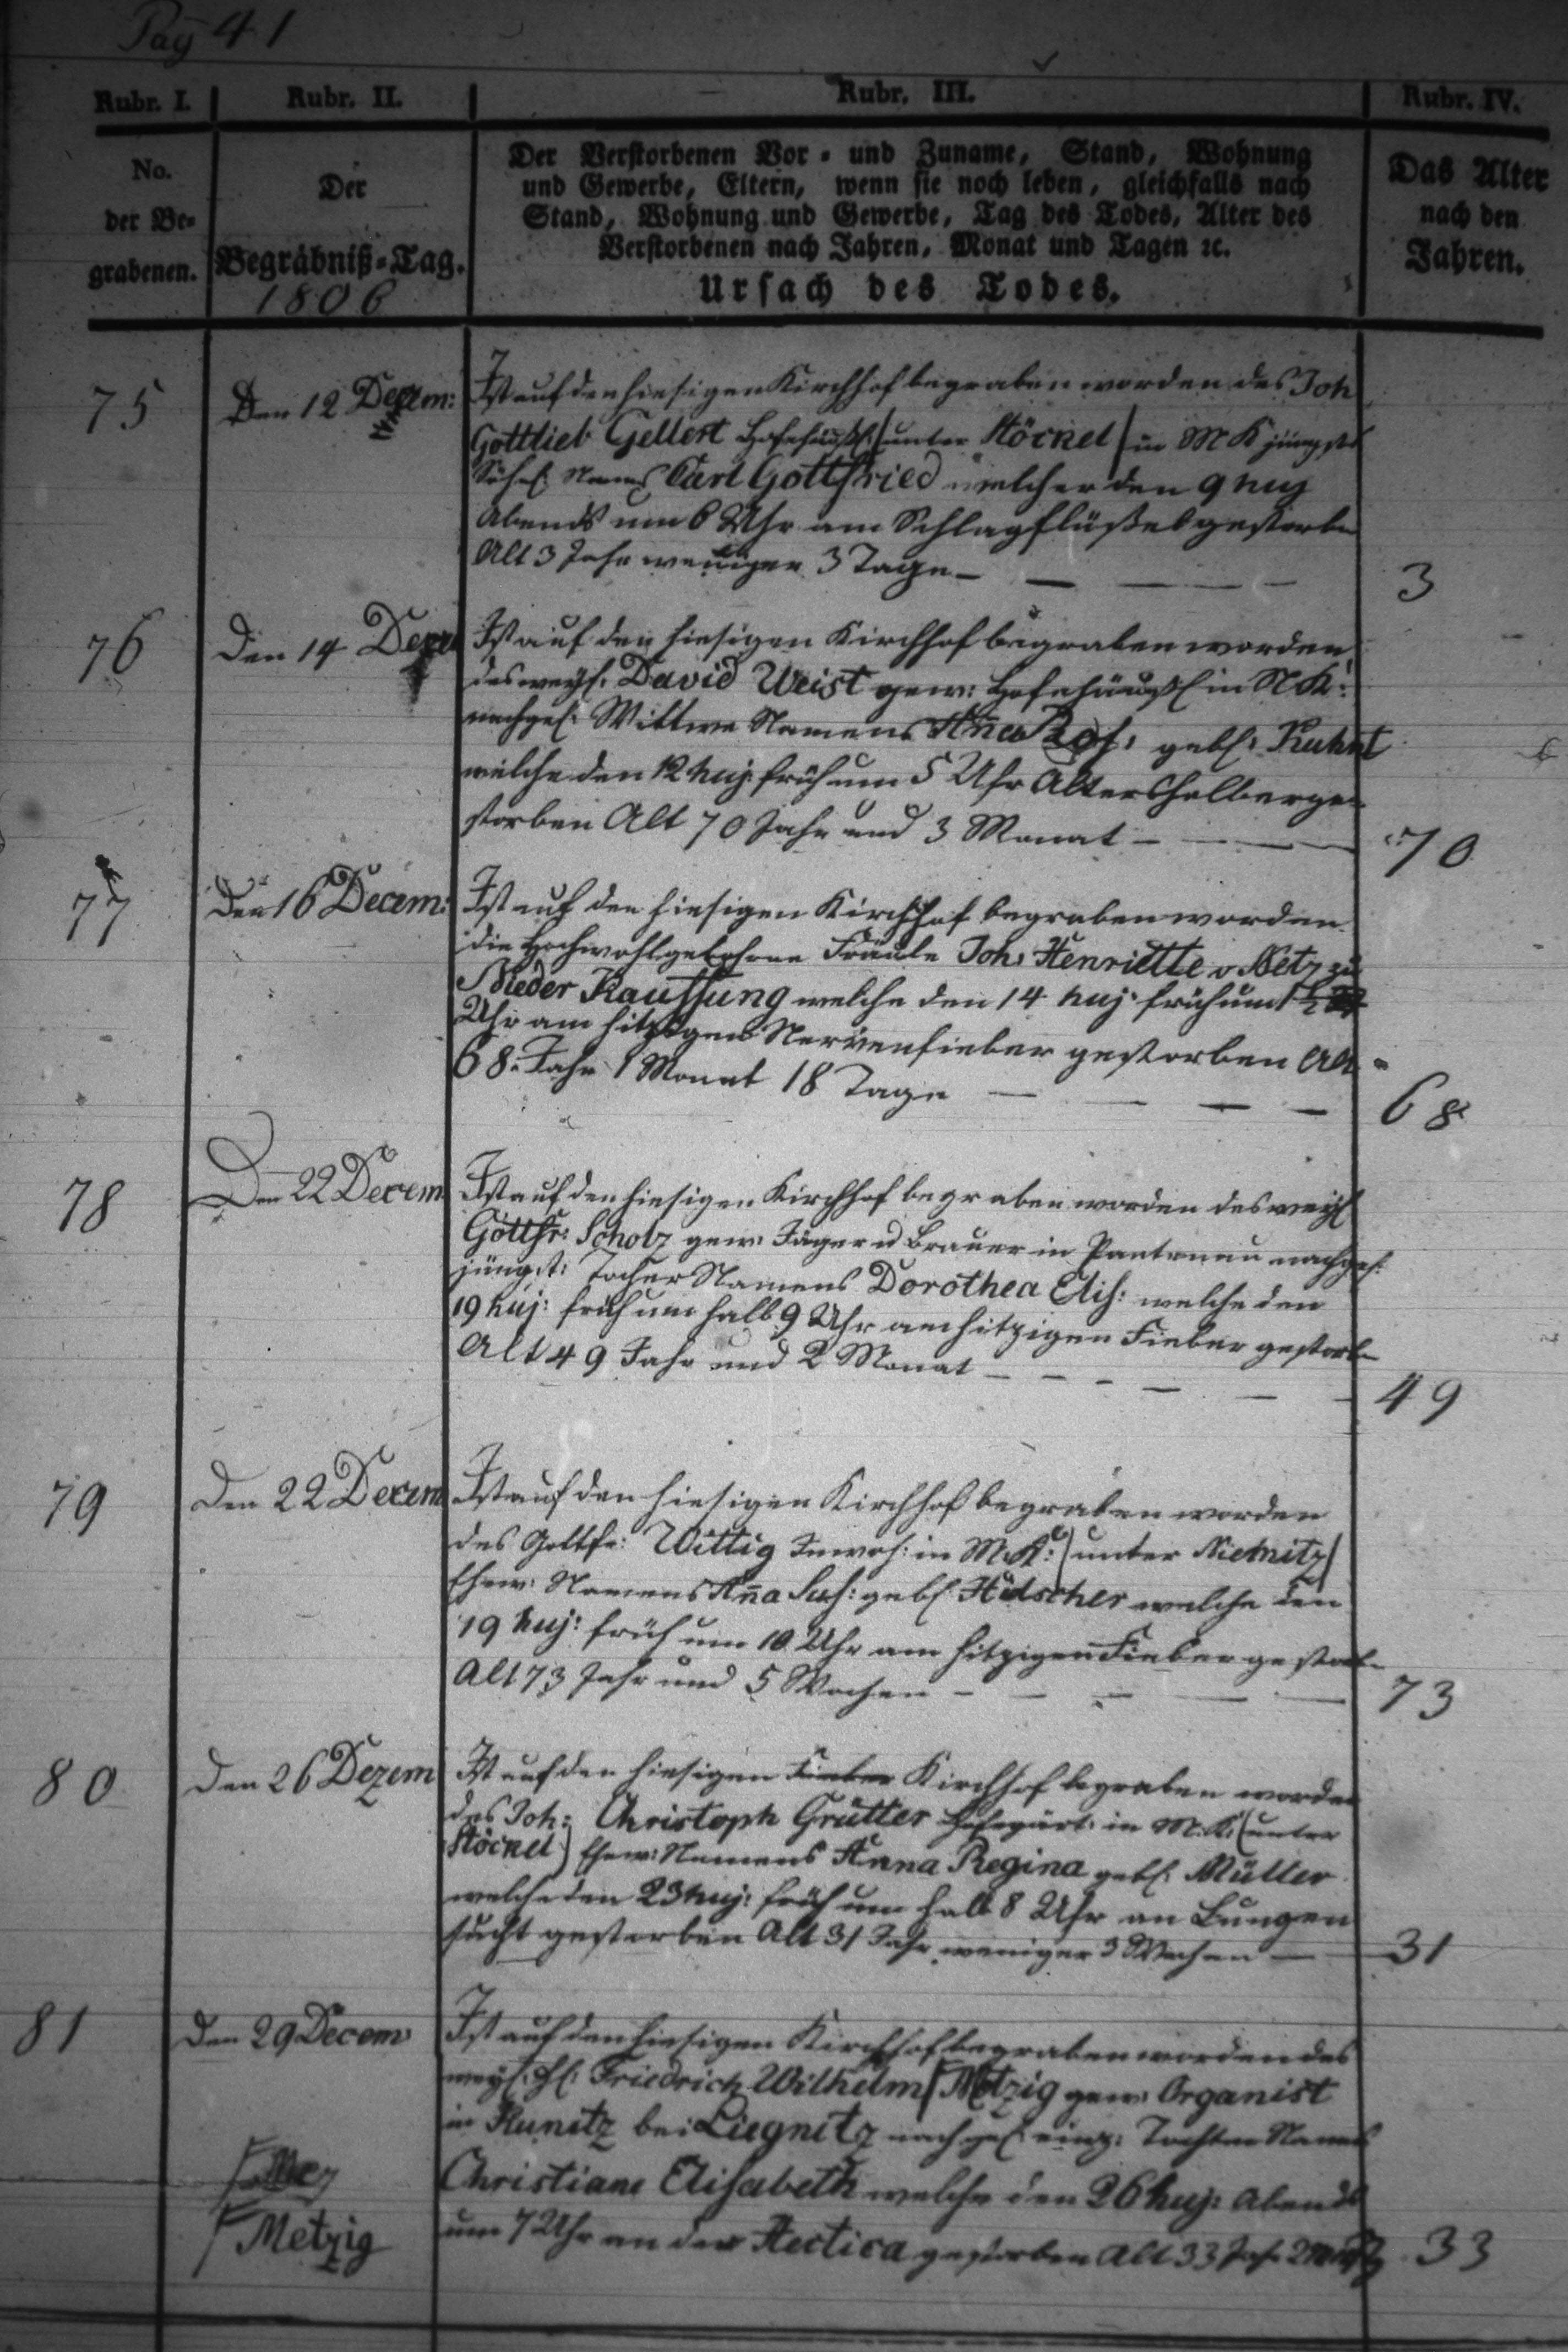 Pag 41
Rubr. I.
Rubr. II.
Rubr. III.
Rubr. IV.
No.
der Be-
grabenen.
Der
Begräbniß-Tag.
1806
Der Verstorbenen Vor- und Zuname, Stand, Wohnung
und Gewerbe, Eltern, wenn sie noch leben, gleichfalls nach
Stand, Wohnung und Gewerbe, Tag des Todes, Alter des
Verstorbenen nach Jahren, Monat und Tagen ꝛc.
Ursach des Todes.
Das Alter
nach den
Jahren.
75
Den 12 Decem:
Ist auf den hiesigen Kirchhof begraben worden des Joh
Gottlieb Gellert Hofehäusl: (unter Stöckel) in M K jüngstes
Söhnl: Namens Carl Gottfried welcher den 9 huj
Abends um 6 Uhr am Schlagflüße gestorben
Alt 3 Jahr weniger 3 Tage
3
76
Den 14 Decem
Ist auf den hiesigen Kirchhof begraben worden
des weyl. David Weist gew: Hofehäusl in N K:
nachgel: Wittwe Namens Aña Ros: gebl: Kuhnt
welche den 12 huj: früh um 5 Uhr Alters halber ge-
storben Alt 70 Jahr und 3 Monat
70
77
Den 16 Decem:
Ist auf den hiesigen Kirchhof begraben worden
die Hochwohlgebohrne Fräule Joh: Henriette v Netz zu
Nieder Kauffung welche den 14 huj: früh um 1½
Uhr am hitzigen Nervenfieber gestorben Alt
68 Jahr 1 Monat 18 Tage
68
78
Den 22 Decem
Ist auf den hiesigen Kirchhof begraben worden des weyl
Gottfr: Scholz gew: Jäger u Brauer in nachgel:
jüngst: Tochter Namens Dorothea Elis: welche den
19 huj: früh um halb 9 Uhr am hitzigen Fieber gestorb
Alt 49 Jahr und 2 Monat
49
79
Den 22 Decem
Ist auf den hiesigen Kirchhof begraben worden
des Gottfr: Wittig Inwoh: in M.K: (unter Niemitz)
Ehew: Namens Aña Sus: gebl: Hülscher welche den
19 huj: früh um 10 Uhr am hitzigen Fieber gestorb
Alt 73 Jahr und 5 Wochen
73
80
Den 26 Dezem
Ist auf den hiesigen Fieber Kirchhof begraben worden
des Joh: Christoph Grütter Hofegärt: in M.K: (unter
Stöckel) Ehew: Namens Anna Regina gebl: Müller
welche den 23 huj: früh um halb 8 Uhr an Lungen
sucht gestorben Alt 31 Jahr weniger 3 Wochen
31
81
Den 29 Decem
Ist auf den hiesigen Kirchhof begraben worden des
weyl: H: Friedrich Wilhelm Metzig gew: Organist
in Kunitz bei Liegnitz nachgel: einz: Tochter Namens
Christiane Elisabeth welche den 26 huj: Abends
um 7 Uhr an der Hectica gestorben Alt 33 Jahr 2
Metzig
33